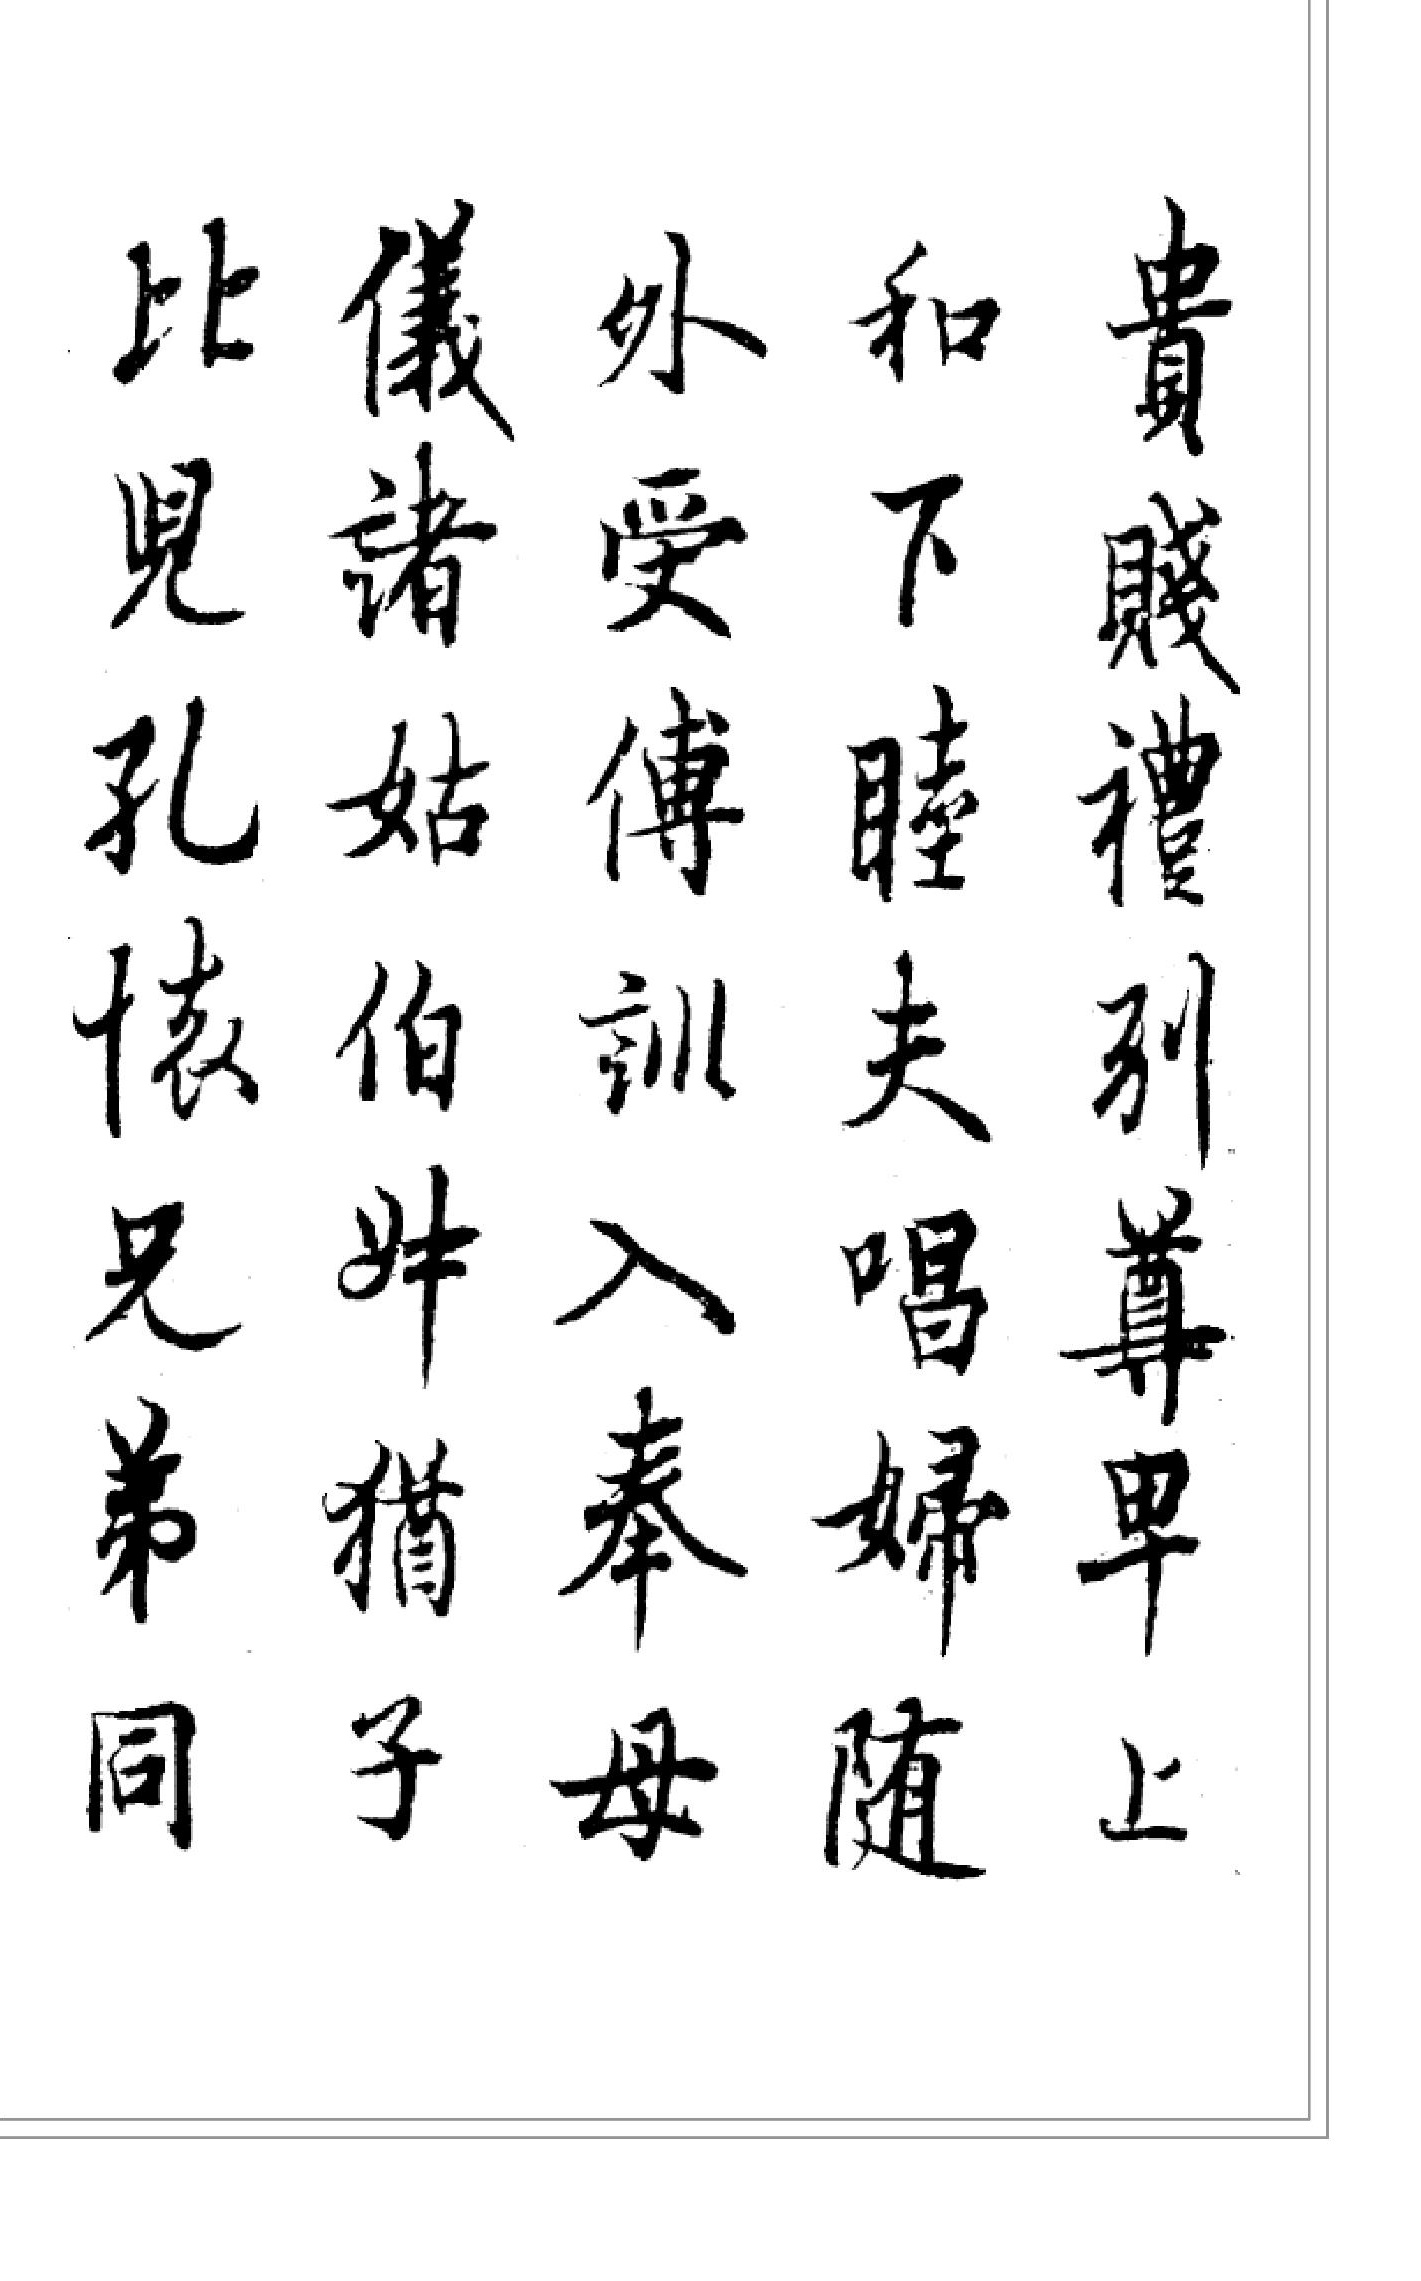 貴賤禮別尊卑上
和下睦夫唱婦随
外受傅訓入奉母
儀諸姑伯叔猶子
比兒孔懐兄弟同